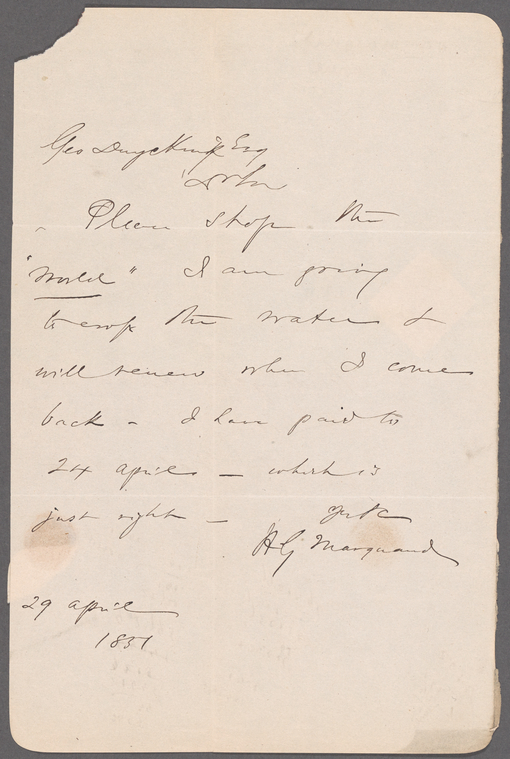 Geo Duyckinck Esq
Dr Sir
Please stop the
"World" I am going
to cross the water &
will renew when I come
back - I have paid to
24 april - which is
just right -
H G Marquand
29 april
1851